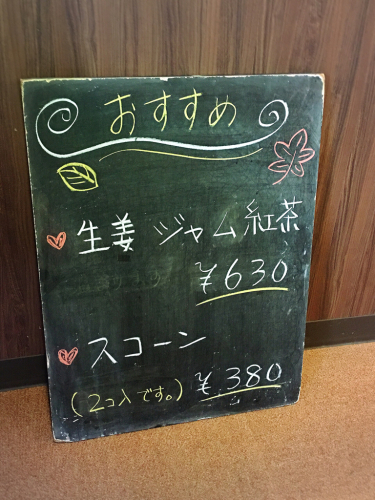 おすすめ
生姜 ジャム紅茶
¥630
スコーン
(2コ入です。) ¥380